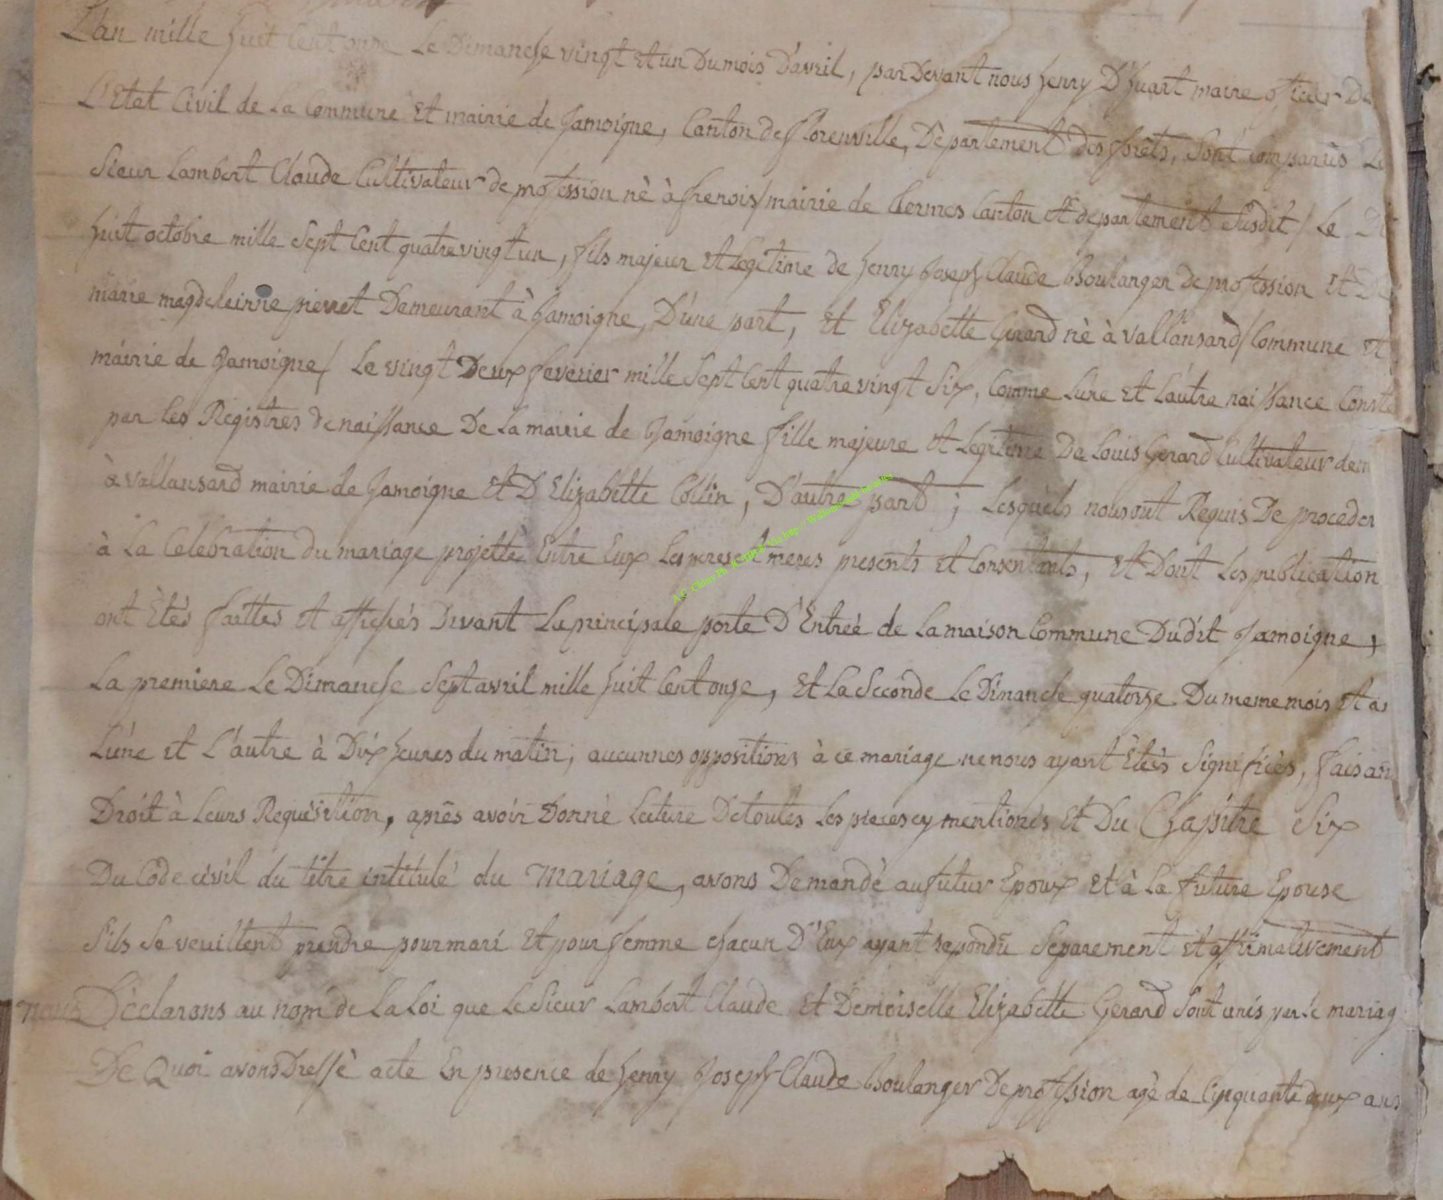 L'an mille huit Cent onze Le Dimanche vingt et un Du mois D'avril, par Devant nous henry D'huart maire officier De
L'Etat Civil de La Commune Et mairie de Jamoigne, Canton de florenville, Département des forêts, sont comparûs Le
Sieur Lambert Claude Cultivateur de profession né à frenois/mairie de Termes Canton et département susdit/ Le
huit octobre mille Sept Cent quatre vingt un, fils majeur Et Legitime de henry Joseph Claude Boulanger De profession Et De
marie magdeleinne pierret Demeurant à Jamoigne, D'une part, Et Elizabette Gerard né à vallansard/Commune Et
mairie de Jamoigne/ Le vingt Deux fevérier mille Sept Cent quatre vingt Six, Comme L'une et L'autre naissance Consté
par Les Régistres de naissance De La mairie de Jamoigne fille majeure et Legitime De Louis Gerard Cultivateur dem
à vallansard mairie de Jamoigne Et D'Elizabette Collin, D'autre part; Lesquels nous ont Requis De proceder
à La Celebration du mariage projetté Entre Eux Les peres et meres presents et Consentants, Et Dont Les publication
ont Etés faittes et affichés Devant La principale porte D'Entreé de La maison Commune Dudit Jamoigne,
La premiere Le Dimanche Sept avril mille huit Cent onze, Et La Seconde Le Dimanche quatorze Du meme mois Et a
L'une et L'autre à Dix heures du matin; aucunnes oppositions à ce mariage ne nous ayant Etés Signifiées, faisan
Droit à Leurs Requisition, après avoir Donné Lecture De toutes Les pieces cy mentionés Et Du Chapitre Six
Du Code civil du titre intitulé du Mariage, avons Demandé au futur Epoux Et à La future Epouse
S'ils Se veuillent prendre pour mari Et pour femme chacun D'Eux ayant repondu Séparement Et affirmativement
nous Déclarons au nom de La Loi que Le Sieur Lambert Claude Et Demoiselle Elizabette Gerard Sont unis par le mariag
De Quoi avons Dressé acte En presence de henry Joseph Claude Boulanger De profession agé de Cinquante deux ans